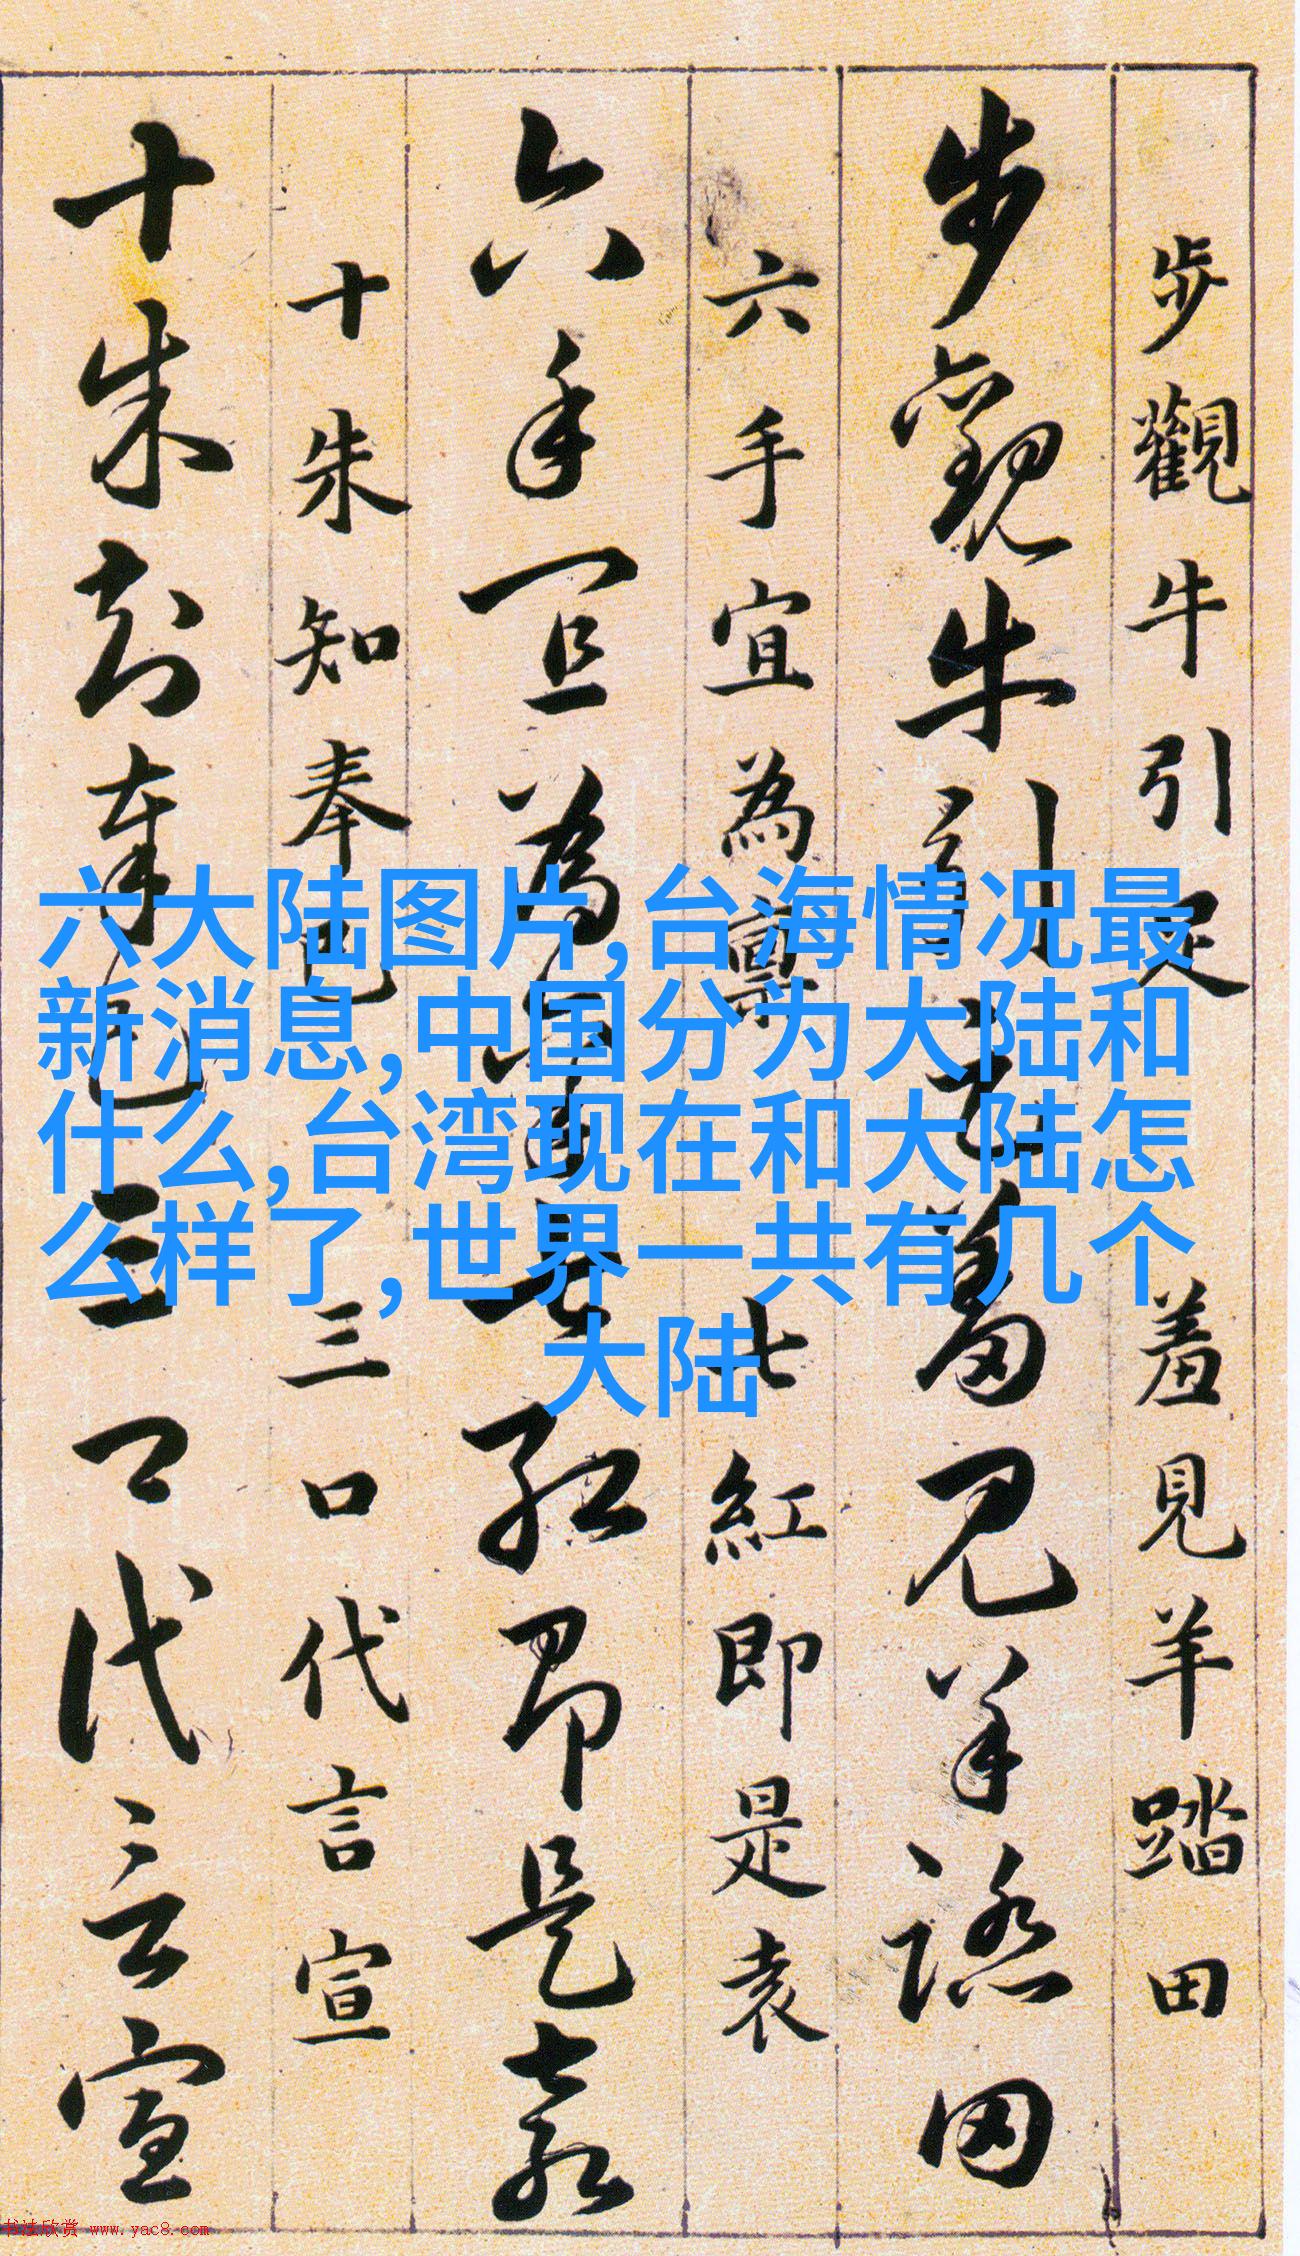 步觀牛引足羞見羊踏田
步觀牛引足羞見羊踏田
六手宜為禀七紅即是袁
六手宜為禀七紅即是袁
十朱知奉已三口代言宣
十朱知奉已三口代言宣
六大陆图片,台海情况最
新消息,中国分为大陆和
什么,台湾现在和大陆怎
么样了,世界一共有几个
大陆
书法欣赏 www.yac8.com